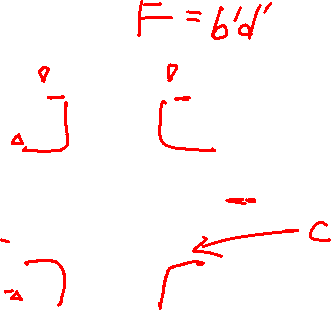 F = b'd'
C